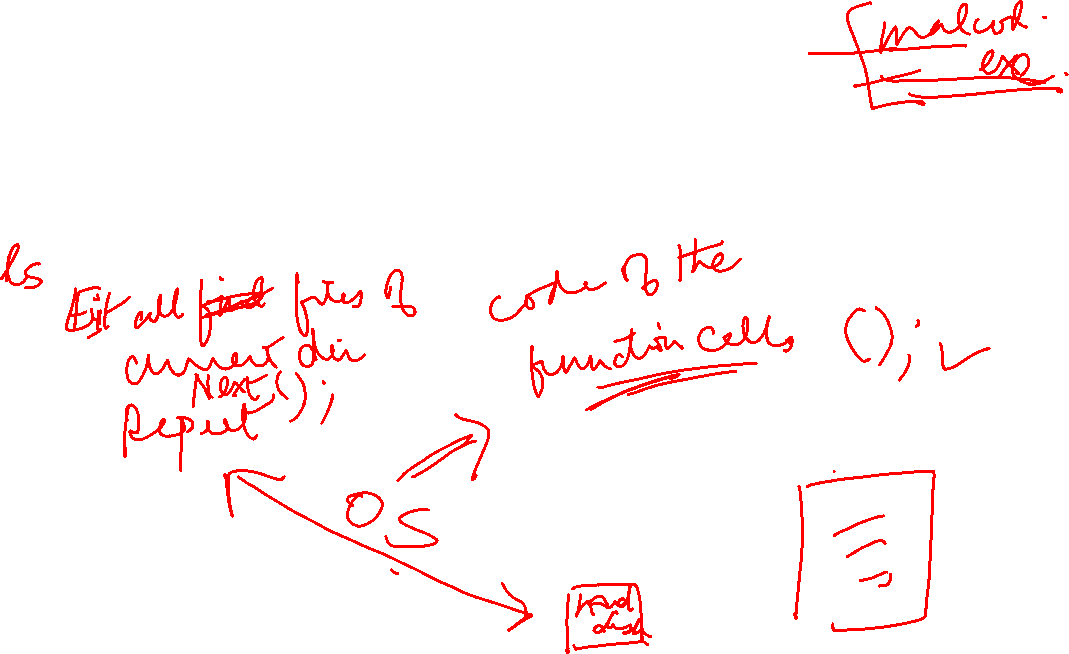 malcod.
exe.
ls
all files of
current dir
Next();
Repeat
code of the
function calls ();
OS
Hard
disk